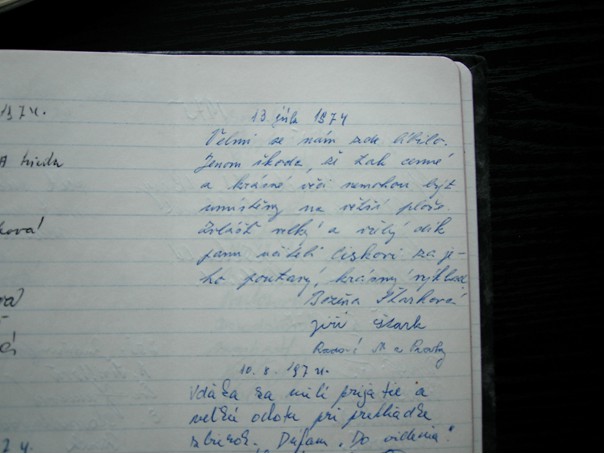 1974.
A trieda
ková!
74.
13. júla 1974
Velmi se nám zde líbilo.
Jenom škoda, že tak cenné
a krásné věci nemohou být
umístěny na větší ploše.
Zvlášť velký a vřelý dík
panu učiteli Liskovi za je-
ho poutavý, krásný výklad
Božena Štarková
Jiří Štark
a Prahy
10. 8. 1974.
Vďaka za milé prijatie a
veľkú ochotu pri prehliadke
zbierok. Dúfam „Do videnia"